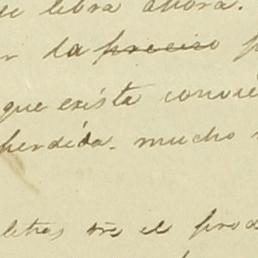 se libra ahora.
r la preciso p
que exista convie
perdida. mucho
letras el prod